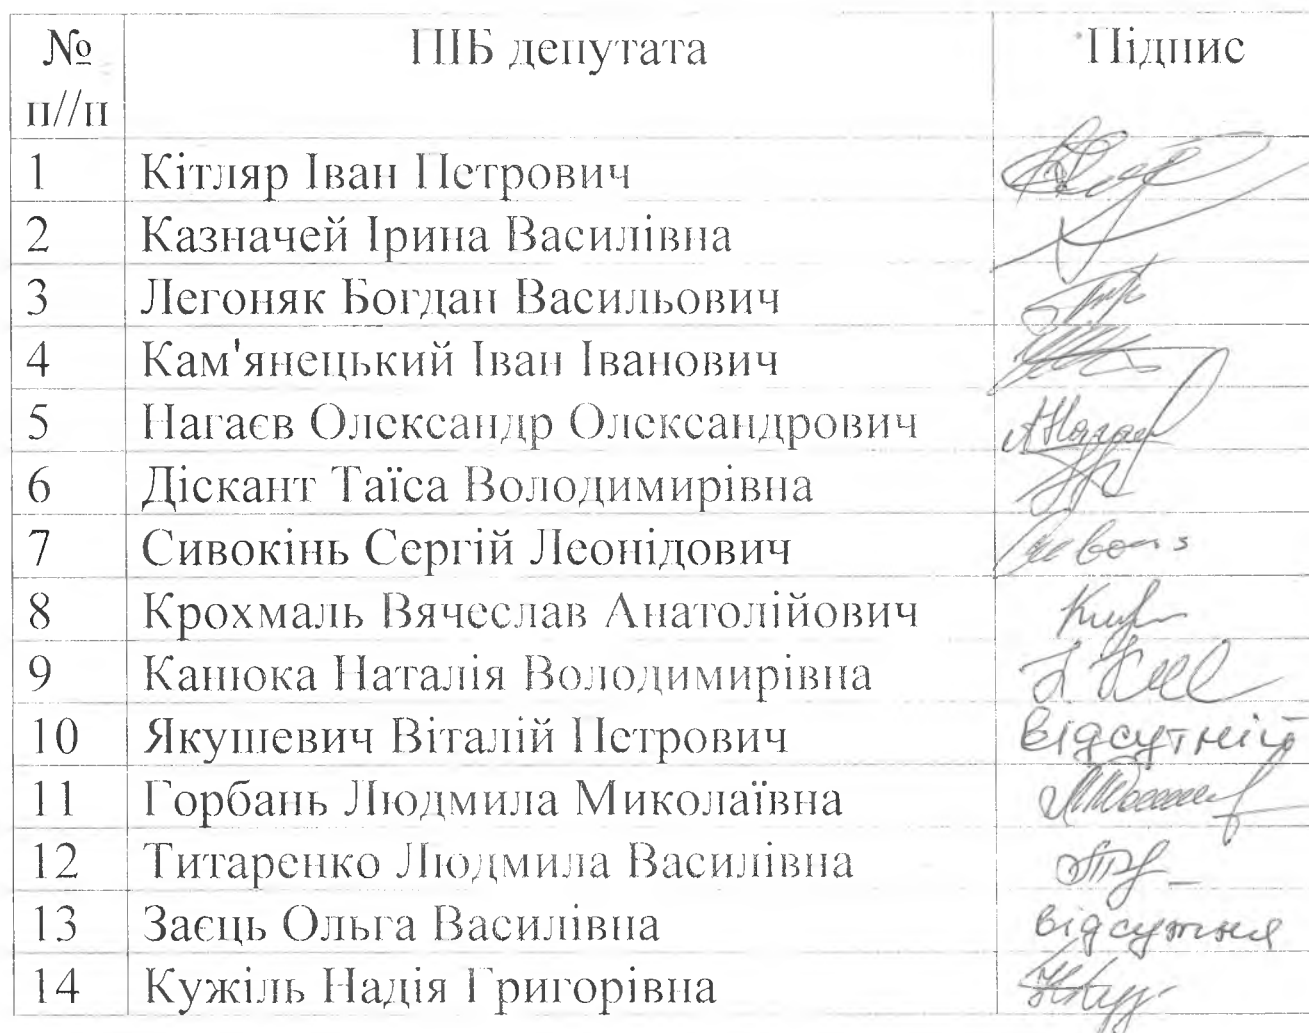 № ПІБ депутата Підпис
п//п
1 Кітляр Іван Петрович
2 Казначей Ірина Василівна
3 Легоняк Богдан Васильович
4 Кам'янецький Іван Іванович
5 Нагаєв Олександр Олександрович
6 Діскант Таїса Володимирівна
7 Сивокінь Сергій Леонідович
8 Крохмаль Вячеслав Анатолійович
9 Канюка Наталія Володимирівна
10 Якушевич Віталій Петрович відсутній
11 Горбань Людмила Миколаївна
12 Титаренко Людмила Василівна
13 Заєць Ольга Василівна відсутня
14 Кужіль Надія Григорівна